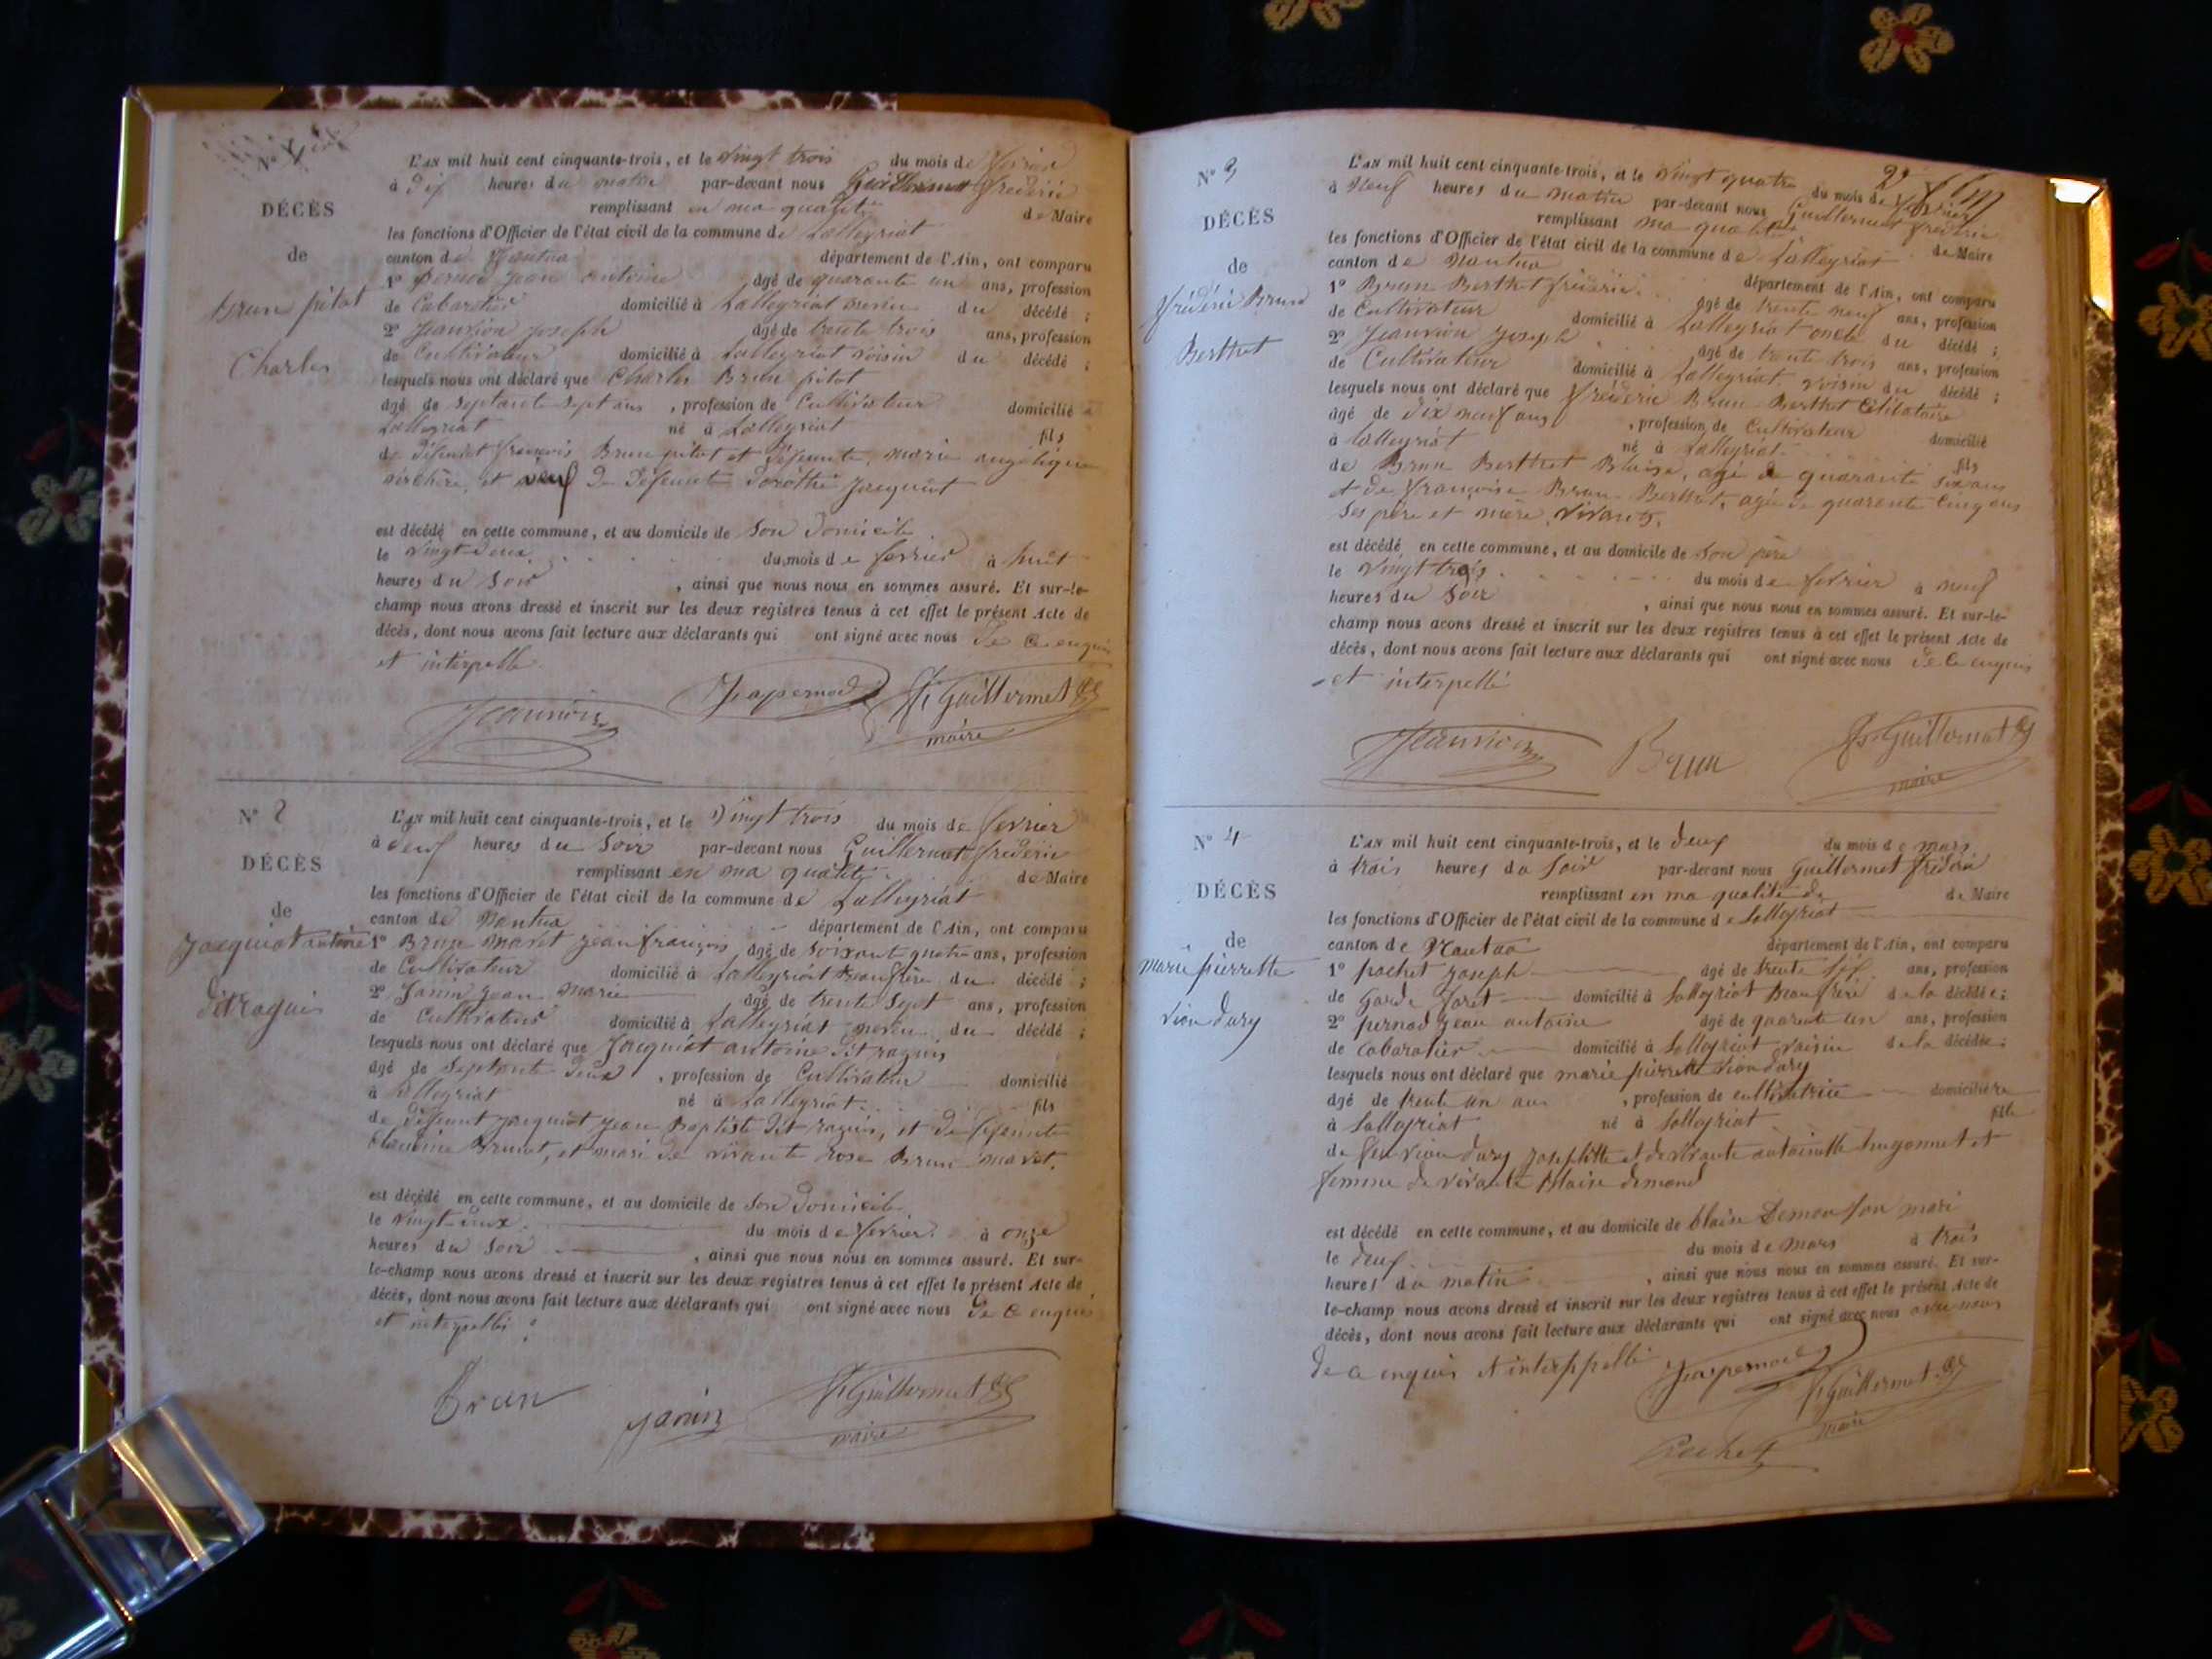 N° 1
DÉCÈS
de
Brun pitot
Charles
L'AN mil huit cent cinquante-trois, et le vingt trois du mois de
à dix heures du matin par-devant nous Guillermet frédéric
remplissant en ma qualité de Maire
les fonctions d'Officier de l'état civil de la commune de Lalleyriat
canton de Nantua département de l'Ain, ont comparu
1° Pernod Jean antoine âgé de quarante un ans, profession
de Cabaretier domicilié à Lalleyriat neveu du décédé ;
2° Jeanvion Joseph âgé de trente trois ans, profession
de Cultivateur domicilié à Lalleyriat voisin du décédé ;
lesquels nous ont déclaré que Charles Brun pitot
âgé de septante sept ans , profession de Cultivateur domicilié à
Lalleyriat né à Lalleyriat fils
de défunt françois Brun pitot et défunte marie angélique
et veuf de défunte Dorothé Jacquiot
est décédé en cette commune, et au domicile de son domicile
le vingt deux du mois de fevrier à huit
heures du soir , ainsi que nous nous en sommes assuré. Et sur-le-
champ nous avons dressé et inscrit sur les deux registres tenus à cet effet le présent Acte de
décès, dont nous avons fait lecture aux déclarants qui ont signé avec nous de ce enquis
et interpellé.
Jeanvion Jn apernod f. Guillermet
maire
N° 2
DÉCÈS
de
Jacquiot antoine
dit raguin
L'AN mil huit cent cinquante-trois, et le vingt trois du mois de fevrier
à neuf heures du soir par-devant nous Guillermet frédéric
remplissant en ma qualité de Maire
les fonctions d'Officier de l'état civil de la commune de Lalleyriat
canton de Nantua département de l'Ain, ont comparu
1° Brun maret jean françois âgé de soixante quatre ans, profession
de Cultivateur domicilié à Lalleyriat beaufrère du décédé ;
2° Janin jean marie âgé de trente sept ans, profession
de Cultivateur domicilié à Lalleyriat neveu du décédé ;
lesquels nous ont déclaré que Jacquiot antoine dit raguin
âgé de septante deux , profession de Cultivateur domicilié
à Lalleyriat né à Lalleyriat fils
de défunt jacquiot jean Baptiste dit raguin, et de défunte
Claudine Brunet, et mari de vivante rose Brun maret.
est décédé en cette commune, et au domicile de son domicile
le vingt-deux du mois de fevrier à onze
heures du soir , ainsi que nous nous en sommes assuré. Et sur-
le-champ nous avons dressé et inscrit sur les deux registres tenus à cet effet le présent Acte de
décès, dont nous avons fait lecture aux déclarants qui ont signé avec nous de ce enquis
et interpellés
brun janin f. Guillermet
maire
2e
N° 3
DÉCÈS
de
frédéric Brun
Berthet
L'AN mil huit cent cinquante-trois, et le vingt quatre du mois de fevrier
à neuf heures du matin par-devant nous Guillermet frederic
remplissant ma qualité de Maire
les fonctions d'Officier de l'état civil de la commune de Lalleyriat
canton de Nantua département de l'Ain, ont comparu
1° Brun Berthet frédéric âgé de trente neuf ans, profession
de Cultivateur domicilié à Lalleyriat oncle du décédé ;
2° Jeanvion Joseph âgé de trente trois ans, profession
de Cultivateur domicilié à Lalleyriat voisin du décédé ;
lesquels nous ont déclaré que frédéric Brun Berthet Célibataire
âgé de dix neuf ans , profession de Cultivateur domicilié
à Lalleyriat né à Lalleyriat fils
de Brun Berthet Blaise, agé de quarante six ans
et de françoise Brun Berthet, agée de quarante cinq ans
ses père et mère vivants.
est décédé en cette commune, et au domicile de son père
le vingt trois du mois de fevrier à neuf
heures du soir , ainsi que nous nous en sommes assuré. Et sur-le-
champ nous avons dressé et inscrit sur les deux registres tenus à cet effet le présent Acte de
décès, dont nous avons fait lecture aux déclarants qui ont signé avec nous de ce enquis
et interpellé
Jeanvion Brun f. Guillermet
maire
N° 4
DÉCÈS
de
marie pierrette
vion dury
L'AN mil huit cent cinquante-trois, et le deux du mois de mars
à trois heures du soir par-devant nous Guillermet frédéric
remplissant en ma qualité de de Maire
les fonctions d'Officier de l'état civil de la commune de Lalleyriat
canton de Nantua département de l'Ain, ont comparu
1° pochet joseph âgé de trente six ans, profession
de garde foret domicilié à Lalleyriat beaufrère de la décédée ;
2° pernod jean antoine âgé de quarante un ans, profession
de cabaratier domicilié à Lalleyriat voisin de la décédée ;
lesquels nous ont déclaré que marie pierrette vion dury
âgé de trente un ans , profession de cultivatrice domiciliée
à Lalleyriat né à Lalleyriat fille
de feu vion dury josephtte et de vivante antoinette hugonnet et
femme de vivante Blaise demond
est décédé en cette commune, et au domicile de blaise Demon son mari
le deux du mois de mars à trois
heures du matin , ainsi que nous nous en sommes assuré. Et sur-
le-champ nous avons dressé et inscrit sur les deux registres tenus à cet effet le présent Acte de
décès, dont nous avons fait lecture aux déclarants qui ont signé avec nous avec nous
de ce enquis et interppellé Jn apernod
f. Guillermet
maire
Pochet